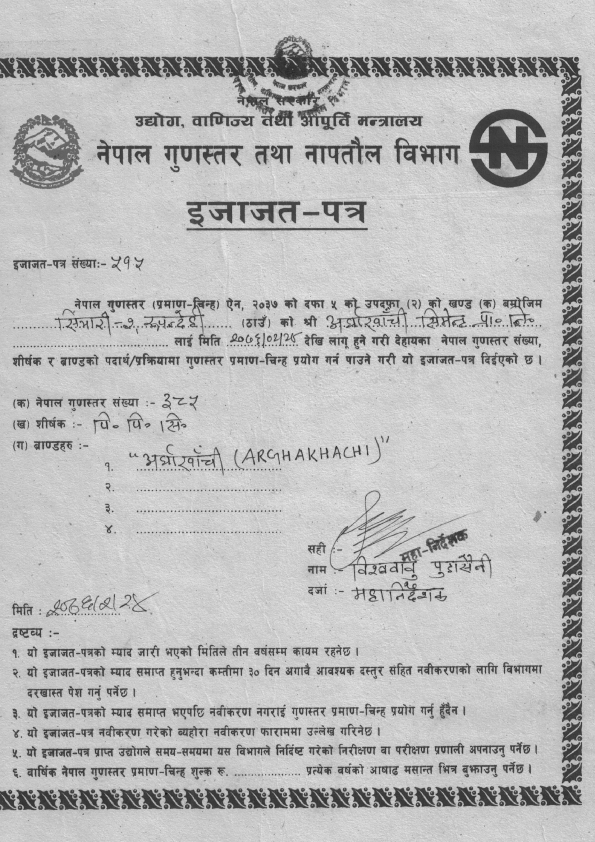 नेपाल सरकार
उद्योग, वाणिज्य तथा आपूर्ति मन्त्रालय
नेपाल गुणस्तर तथा नापतौल विभाग
इजाजत-पत्र
इजाजत-पत्र संख्याः- ५१५
नेपाल गुणस्तर (प्रमाण-चिन्ह) ऐन, २०३७ को दफा ५ को उपदफा (२) को खण्ड (क) बमोजिम
सियारी-२, रुपन्देही (ठाउँ) को श्री अर्घाखाँची सिमेन्ट प्रा॰ लि॰
लाई मिति २०७६/०२/२४ देखि लागू हुने गरी देहायका नेपाल गुणस्तर संख्या,
शीर्षक र ब्राण्डको पदार्थ/प्रक्रियामा गुणस्तर प्रमाण-चिन्ह प्रयोग गर्न पाउने गरी यो इजाजत-पत्र दिईएको छ ।
(क) नेपाल गुणस्तर संख्या :- ३८५
(ख) शीर्षक :- पि॰ पि॰ सि॰
(ग) ब्राण्डहरु :-
१. "अर्घाखाँची (ARGHAKHACHI)"
२.
३.
४.
सही :-
महा-निर्देशक
नाम :- विश्वबाबु पुडासैनी
दर्जा :- महानिर्देशक
मिति : २०७६/२/२४
द्रष्टव्य :-
१. यो इजाजत-पत्रको म्याद जारी भएको मितिले तीन वर्षसम्म कायम रहनेछ ।
२. यो इजाजत-पत्रको म्याद समाप्त हुनुभन्दा कम्तीमा ३० दिन अगावै आवश्यक दस्तुर सहित नवीकरणको लागि विभागमा
दरखास्त पेश गर्नु पर्नेछ ।
३. यो इजाजत-पत्रको म्याद समाप्त भएपछि नवीकरण नगराई गुणस्तर प्रमाण-चिन्ह प्रयोग गर्नु हुँदैन ।
४. यो इजाजत-पत्र नवीकरण गरेको ब्यहोरा नवीकरण फाराममा उल्लेख गरिनेछ ।
५. यो इजाजत-पत्र प्राप्त उद्योगले समय-समयमा यस विभागले निर्दिष्ट गरेको निरीक्षण वा परीक्षण प्रणाली अपनाउनु पर्नेछ ।
६. वार्षिक नेपाल गुणस्तर प्रमाण-चिन्ह शुल्क रू. .................. प्रत्येक वर्षको आषाढ मसान्त भित्र बुझाउनु पर्नेछ ।